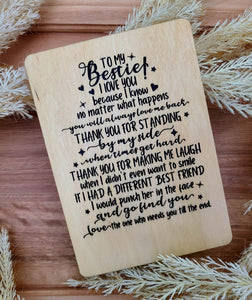 TO MY
Bestie!
I LOVE YOU
because I know
no matter what happens
you will always love me back
THANK YOU FOR STANDING
by my side
when times get hard
THANK YOU FOR MAKING ME LAUGH
when I didn't even want to smile
IF I HAD A DIFFERENT BEST FRIEND
I would punch her in the face
and go find you
Love the one who needs you till the end